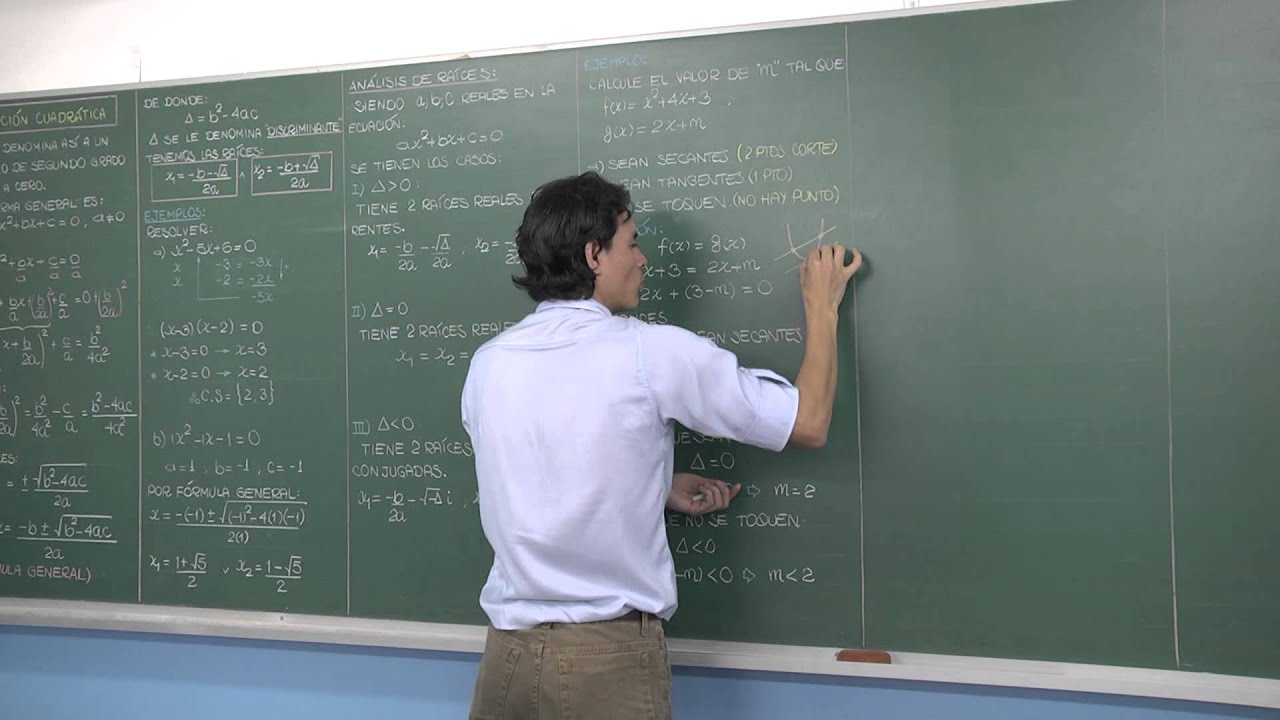 CIÓN CUADRÁTICA
DENOMINA ASÍ A UN
O DE SEGUNDO GRADO
A CERO.
RMA GENERAL ES:
x²+bx+c=0, a≠0
+bx+c=0
a a a
= -b±√(b²-4ac)
2a
ULA GENERAL)
DE DONDE:
Δ=b²-4ac
Δ SE LE DENOMINA "DISCRIMINANTE"
TENEMOS LAS RAÍCES:
x₁=-b-√Δ ∧ x₂=-b+√Δ
2a 2a
EJEMPLOS:
RESOLVER:
a) x²-5x+6=0
x -3=-3x
x -2=-2x
-5x
(x-3)(x-2)=0
* x-3=0 → x=3
* x-2=0 → x=2
C.S={2,3}
b) 1x²-1x-1=0
a=1, b=-1, c=-1
POR FÓRMULA GENERAL:
x=-(-1)±√((-1)²-4(1)(-1))
2(1)
x₁=1+√5 ∨ x₂=1-√5
2 2
ANÁLISIS DE RAÍCES:
SIENDO a,b,c REALES EN LA
ECUACIÓN:
ax²+bx+c=0
SE TIENEN LOS CASOS:
I) Δ>0:
TIENE 2 RAÍCES REALES
RENTES.
x₁=-b-√Δ ; x₂=-b
2a 2a 2a
II) Δ=0
TIENE 2 RAÍCES REALES
x₁=x₂=
III) Δ<0
TIENE 2 RAÍCES
CONJUGADAS.
x₁=-b-√-Δ i ,
2a
EJEMPLO:
CALCULE EL VALOR DE "m" TAL QUE
f(x)=x²+4x+3
g(x)=2x+m
SEAN SECANTES.(2 PTOS CORTE)
EAN TANGENTES (1 PTO)
SE TOQUEN.(NO HAY PUNTO)
ÓN:
f(x)=g(x)
x+3=2x+m
2x+(3-m)=0
EAN SECANTES
Δ=0
⇨ m=2
UE NO SE TOQUEN.
Δ<0
-m)<0 ⇨ m<2